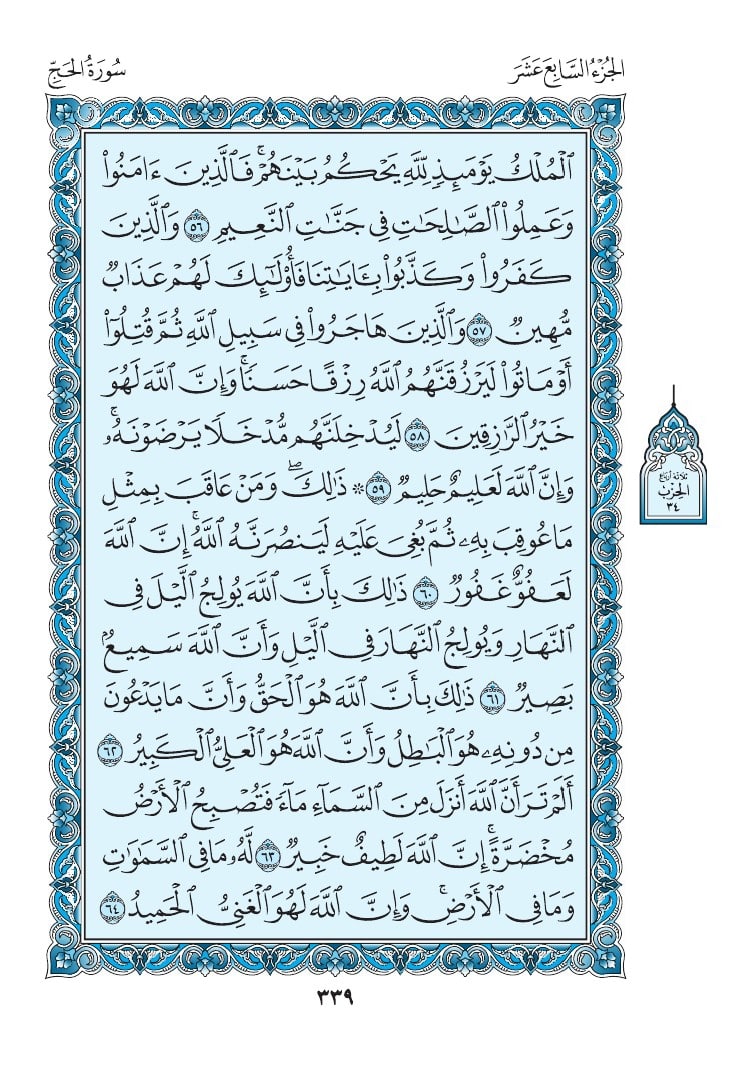 الجُزْءُ السَّابِعَ عَشَرَ
سُورَةُ الحَجِّ
ٱلْمُلْكُ يَوْمَئِذٍ لِّلَّهِ يَحْكُمُ بَيْنَهُمْ ۚ فَٱلَّذِينَ ءَامَنُوا۟
وَعَمِلُوا۟ ٱلصَّـٰلِحَـٰتِ فِى جَنَّـٰتِ ٱلنَّعِيمِ ٥٦ وَٱلَّذِينَ
كَفَرُوا۟ وَكَذَّبُوا۟ بِـَٔايَـٰتِنَا فَأُو۟لَـٰٓئِكَ لَهُمْ عَذَابٌ
مُّهِينٌ ٥٧ وَٱلَّذِينَ هَاجَرُوا۟ فِى سَبِيلِ ٱللَّهِ ثُمَّ قُتِلُوٓا۟
أَوْ مَاتُوا۟ لَيَرْزُقَنَّهُمُ ٱللَّهُ رِزْقًا حَسَنًا ۚ وَإِنَّ ٱللَّهَ لَهُوَ
خَيْرُ ٱلرَّٰزِقِينَ ٥٨ لَيُدْخِلَنَّهُم مُّدْخَلًا يَرْضَوْنَهُۥ ۗ
وَإِنَّ ٱللَّهَ لَعَلِيمٌ حَلِيمٌ ٥٩ ۞ ذَٰلِكَ ۖ وَمَنْ عَاقَبَ بِمِثْلِ
مَا عُوقِبَ بِهِۦ ثُمَّ بُغِىَ عَلَيْهِ لَيَنصُرَنَّهُ ٱللَّهُ ۗ إِنَّ ٱللَّهَ
لَعَفُوٌّ غَفُورٌ ٦٠ ذَٰلِكَ بِأَنَّ ٱللَّهَ يُولِجُ ٱلَّيْلَ فِى
ٱلنَّهَارِ وَيُولِجُ ٱلنَّهَارَ فِى ٱلَّيْلِ وَأَنَّ ٱللَّهَ سَمِيعٌۢ
بَصِيرٌ ٦١ ذَٰلِكَ بِأَنَّ ٱللَّهَ هُوَ ٱلْحَقُّ وَأَنَّ مَا يَدْعُونَ
مِن دُونِهِۦ هُوَ ٱلْبَـٰطِلُ وَأَنَّ ٱللَّهَ هُوَ ٱلْعَلِىُّ ٱلْكَبِيرُ ٦٢
أَلَمْ تَرَ أَنَّ ٱللَّهَ أَنزَلَ مِنَ ٱلسَّمَآءِ مَآءً فَتُصْبِحُ ٱلْأَرْضُ
مُخْضَرَّةً ۗ إِنَّ ٱللَّهَ لَطِيفٌ خَبِيرٌ ٦٣ لَّهُۥ مَا فِى ٱلسَّمَـٰوَٰتِ
وَمَا فِى ٱلْأَرْضِ ۗ وَإِنَّ ٱللَّهَ لَهُوَ ٱلْغَنِىُّ ٱلْحَمِيدُ ٦٤
ثلاثة أرباع
الحزب
٣٤
٣٣٩